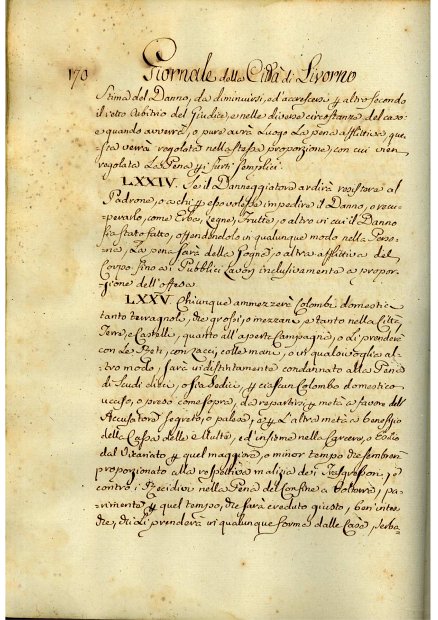 170 Giornale della Città di Livorno
Stima del Danno, da diminuirsi, ed accrescersi altro secondo
il retto Arbitrio del Giudice, e nelle diverse circostanze del caso
e quando avverrà, o pure avrà Luogo La pena afflittiva, que-
sta verrà regolata nella stessa proporzione, con cui vien
regolata La Pena i furti semplici.
LXXIV. Se il Danneggiatore ardirà resistere al
Padrone, o a chi esso volesse impedire il Danno, o recu-
perarlo, come Erbe, Legne, Frutte, o altro in cui il Danno
sia stato fatto, offendendolo in qualunque modo nella Perso-
na, La pena sarà della Galera, o altra afflittiva del
Corpo fino ai Pubblici Lavori inclusivamente a propor-
zione dell'offesa.
LXXV. Chiunque ammazzerà Colombi domestici
tanto terragnoli, che grossi, o mezzani, e tanto nella Città,
Terre, e Castelli, quanto all'aperta Campagna, o li prenderà
con Le Reti, con Lacci, colle mani, o in qualsivoglia al-
tro modo, sarà indistintamente condannato alla Pena
di Scudi dieci, o sia ciascun Colombo domestico
ucciso, o preso come sopra, da repartirsi metà a favore dell'
Accusatore segreto, o palese, e L'altra metà a benefizio
della Cassa delle Multe, ed insieme nella Carcere, o Esilio
dal Vicariato quel maggiore, o minor tempo che sembrerà
proporzionato alla respettiva malizia dei Trasgressori, e
contro i Recidivi nella Pena del Confine a Volterra, pa-
rimente quel tempo, che sarà creduto giusto, ben inte-
so, che chi li prenderà in qualunque forma dalle Case, serba-